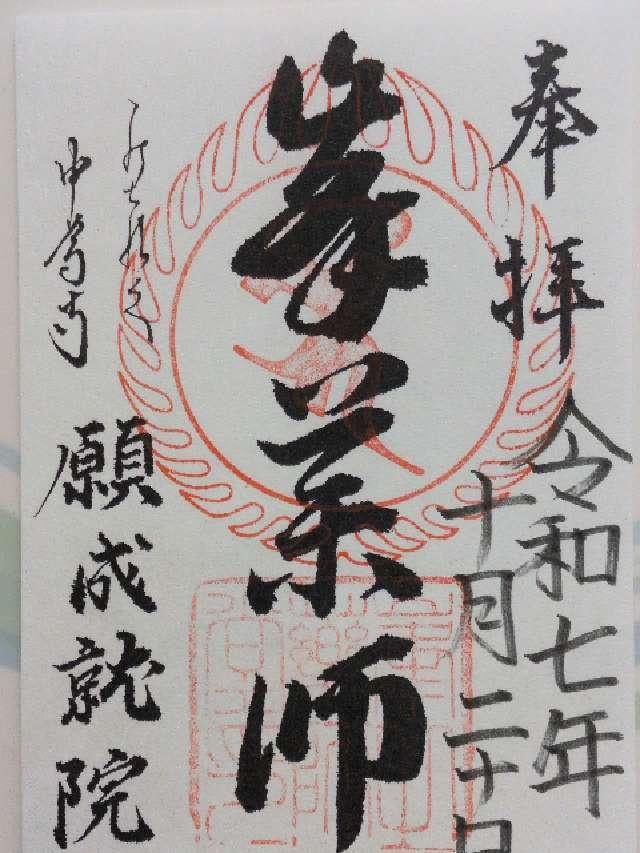 奉拝
令和七年
十月二十日
峯薬師
中尊寺
願成就院